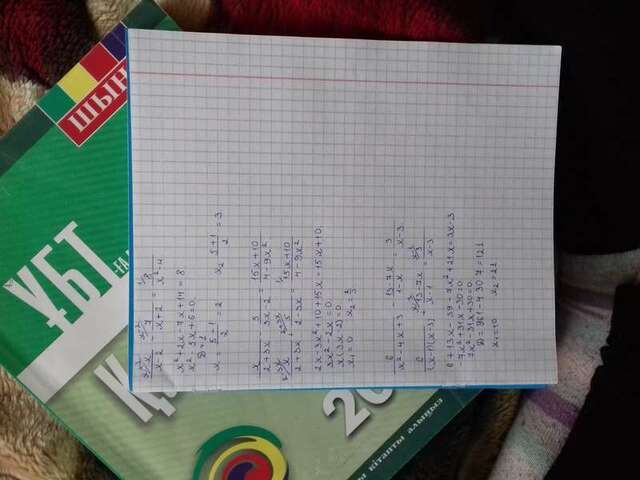 ҰБТ
-ҒА
ШЫН
ҚҰ
20
кітапты алыңыз
x+2 x-2 1
x/(x-2) - 7/(x+2) = 8/(x²-4)
x² + 2x - 7x + 14 = 8
x² - 5x + 6 = 0
D = 1
x = (5-1)/2 = 2 x₂ (5+1)/2 = 3
x/(2+3x) - 5/(3x-2) = (15x+10)/(4-9x²)
2-3x 2+3x 1
x/(2+3x) + 5/(2-3x) = (15x+10)/(4-9x²)
2x - 3x² + 10 + 15x = 15x + 10
3x² - 2x = 0
x(3x-2) = 0
x₁ = 0 x₂ = 2/3
6/(x²-4x+3) - (13-7x)/(1-x) = 3/(x-3)
x-3 x-1
6/((x-1)(x-3)) + (13-7x)/(x-1) = 3/(x-3)
6 + 13x - 39 - 7x² + 21x = 3x - 3
-7x² + 31x - 30 = 0
7x² - 31x + 30 = 0
D = 961 - 4 30 7 = 121